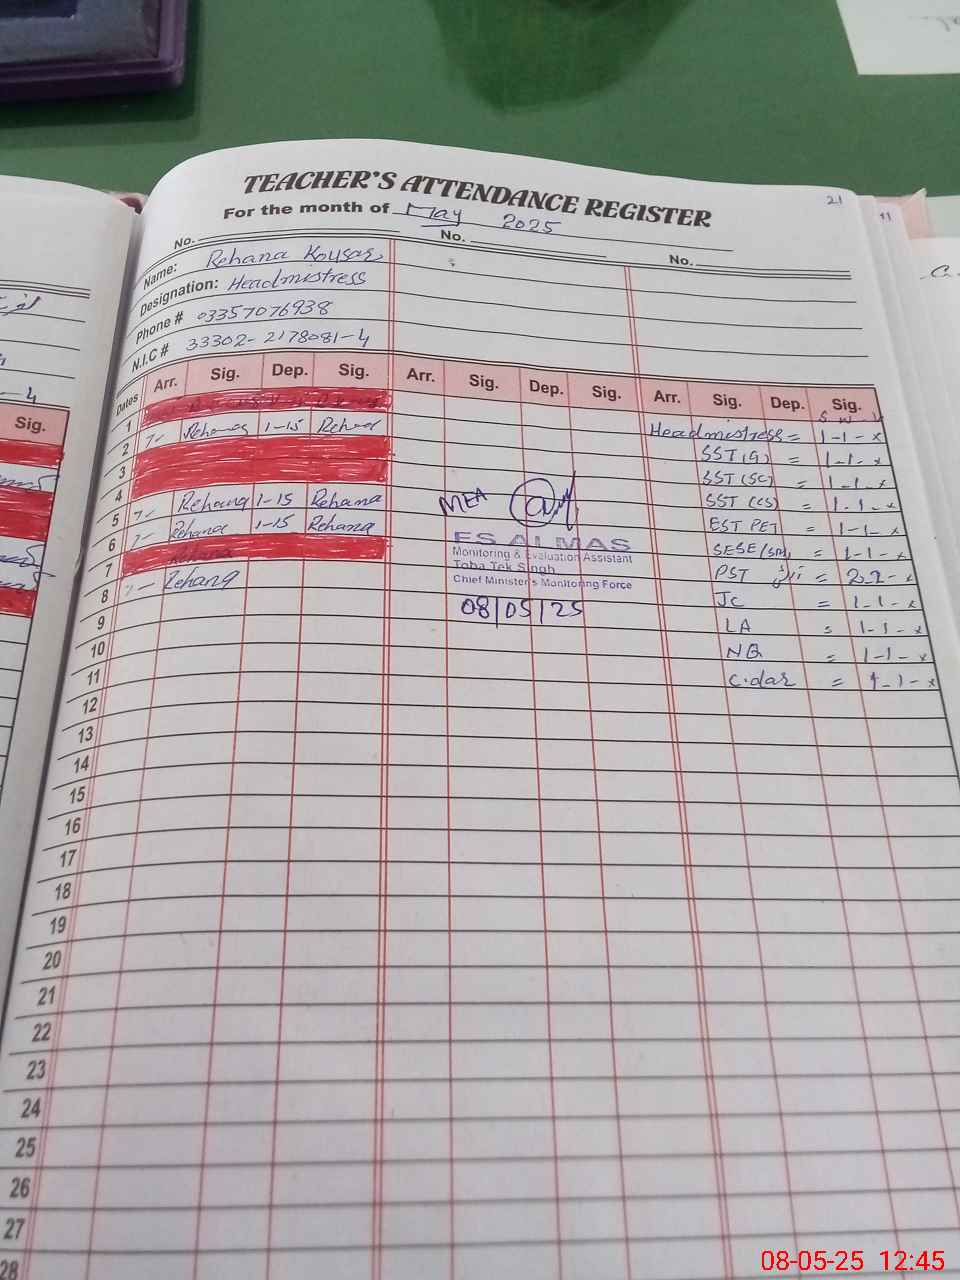 TEACHER'S ATTENDANCE REGISTER
21
For the month of May 2025
11
No. No. No.
Name: Rehana Kousar
Designation: Headmistress
Phone # 03357076938
N.I.C # 33302-2178081-4
Dates Arr. Sig. Dep. Sig. Arr. Sig. Dep. Sig. Arr. Sig. Dep. Sig.
Sig.
S W V
1 Headmistress = 1-1-x
2 7- Rehana 1-15 Rehana SST (G) = 1-1-x
3 SST (SC) = 1-1-x
4 SST (CS) = 1-1-x
5 7- Rehana 1-15 Rehana MEA EST PET = 1-1-x
6 7- Rehana 1-15 Rehana SESE = 1-1-x
7 Rehana PST = 22-x
8 7- Rehana JC = 1-1-x
ES ALMAS
Monitoring & Evaluation Assistant
Toba Tek Singh
Chief Minister's Monitoring Force
08/05/25
9 LA = 1-1-x
10 NQ = 1-1-x
11 C.dar = 1-1-x
12
13
14
15
16
17
18
19
20
21
22
23
24
25
26
27
28
08-05-25 12:45